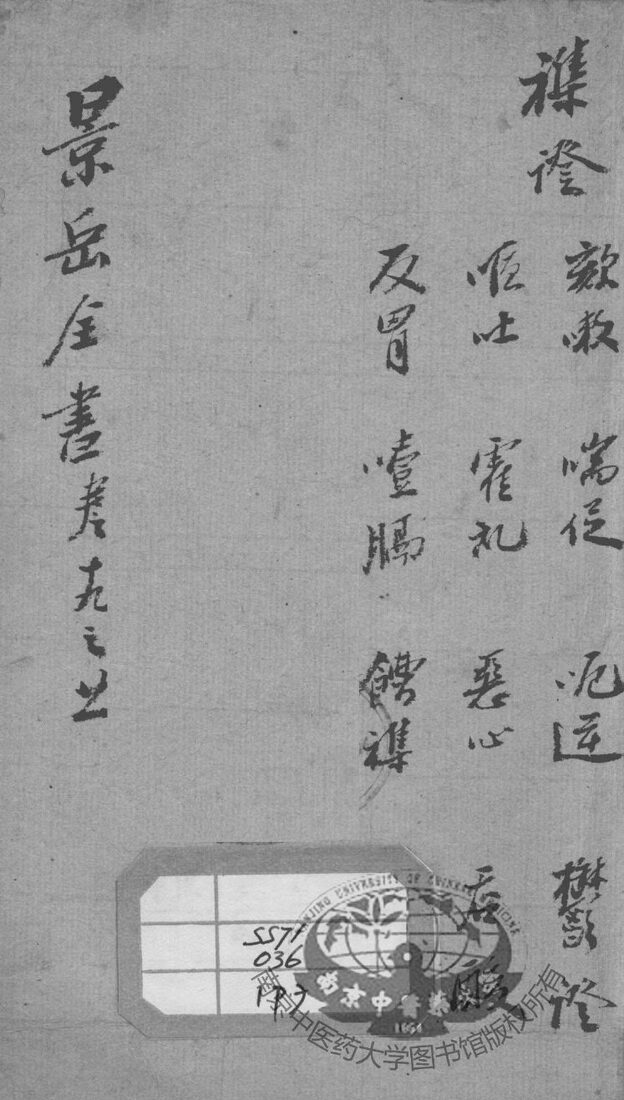 襍證
欬嗽 喘促 呃逆 鬱證
嘔吐 霍乱 惡心 吞酸
反胃 噎膈 饐襍
景岳全書卷十九之廿一
SS71
036
NANJING UNIVERSITY OF CHINESE MEDICINE
南京中醫藥
1954
南京中医药大学图书馆版权所有